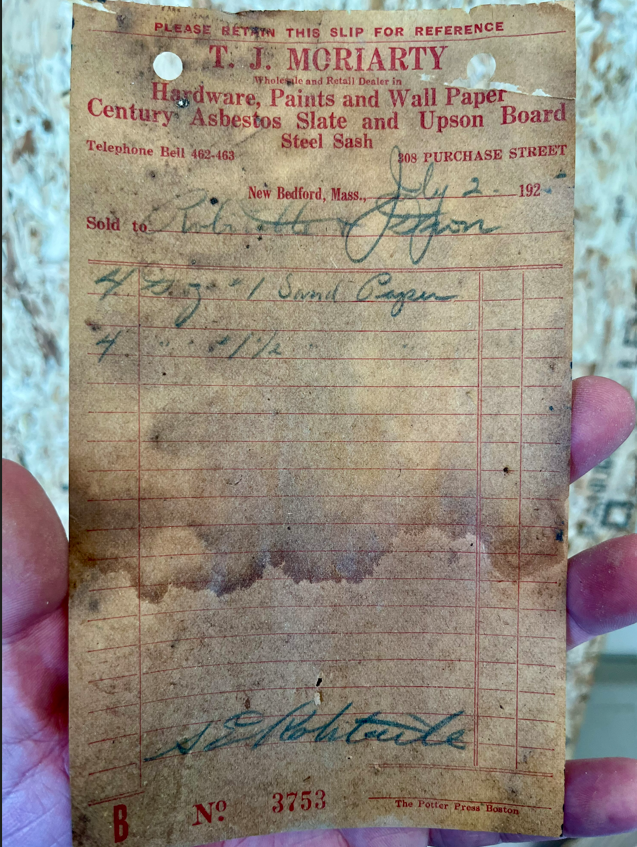 PLEASE RETAIN THIS SLIP FOR REFERENCE
T. J. MORIARTY
Wholesale and Retail Dealer in
Hardware, Paints and Wall Paper
Century Asbestos Slate and Upson Board
Steel Sash
Telephone Bell 462-463
308 PURCHASE STREET
New Bedford, Mass., July 2 192
Sold to &
4 Doz #1 Sand Paper
4 " " #1½ " "
S E Robitaille
B No 3753
The Potter Press Boston